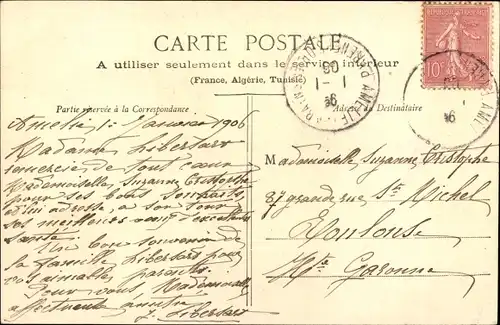 CARTE POSTALE
A utiliser seulement dans le service intérieur
(France, Algérie, Tunisie)
Partie réservée à la Correspondance
Adresse du Destinataire
REPUBLIQUE FRANCAISE
10c
Amélie 1er Janvier 1906
Madame Libersart
remercie de tout cœur
Mademoiselle Suzanne Cristophe
pour ses bons souhaits
et lui adresse, à son tour
ses meilleurs vœux d'excellente
santé.
bon souvenir de
la famille Libersart pour
vos aimables parents.
Pour vous, Mademoiselle
affectueuse amitié
J. Libersart
Mademoiselle Suzanne Cristophe
87 grande rue St Michel
Toulouse
Hte Garonne